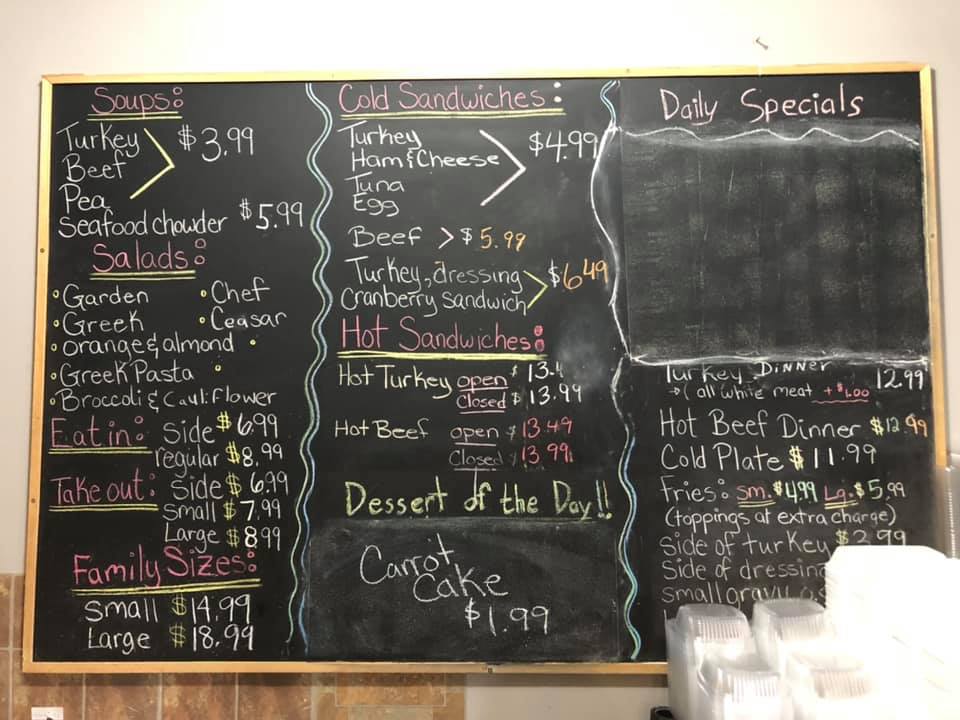 Soups:
Turkey
Beef
Pea
$3.99
Seafood chowder $5.99
Salads:
• Garden • Chef
• Greek • Ceasar
• orange & almond •
• Greek Pasta •
• Broccoli & Cauliflower
Eat in: Side $6.99
regular $8.99
Take out: Side $6.99
Small $7.99
Large $8.99
Family Sizes:
Small $14.99
Large $18.99
Cold Sandwiches:
Turkey
Ham & Cheese
Tuna
Egg
$4.99
Beef > $5.99
Turkey, dressing
Cranberry sandwich
$6.49
Hot Sandwiches:
Hot Turkey open $13.4
Closed $13.99
Hot Beef open $13.49
Closed $13.99
Dessert of the Day!!
Carrot
Cake
$1.99
Daily Specials
Turkey Dinner 12.99
→( all white meat + $1.00
Hot Beef Dinner $12.99
Cold Plate $11.99
Fries: Sm. $4.99 Lg. $5.99
(toppings at extra charge)
Side of turkey $2.99
Side of dressin
small gravy